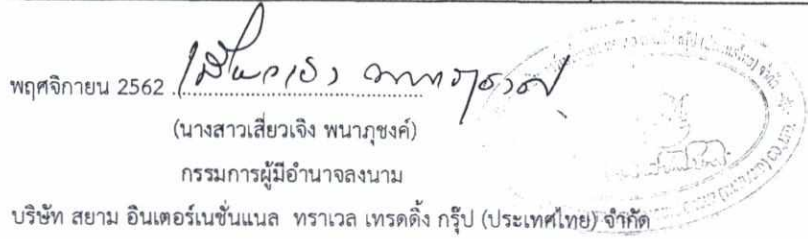 พฤศจิกายน 2562
(นางสาวเสี่ยวเจิง พนาภุชงค์)
กรรมการผู้มีอำนาจลงนาม
บริษัท สยาม อินเตอร์เนชั่นแนล ทราเวล เทรดดิ้ง กรุ๊ป (ประเทศไทย) จำกัด